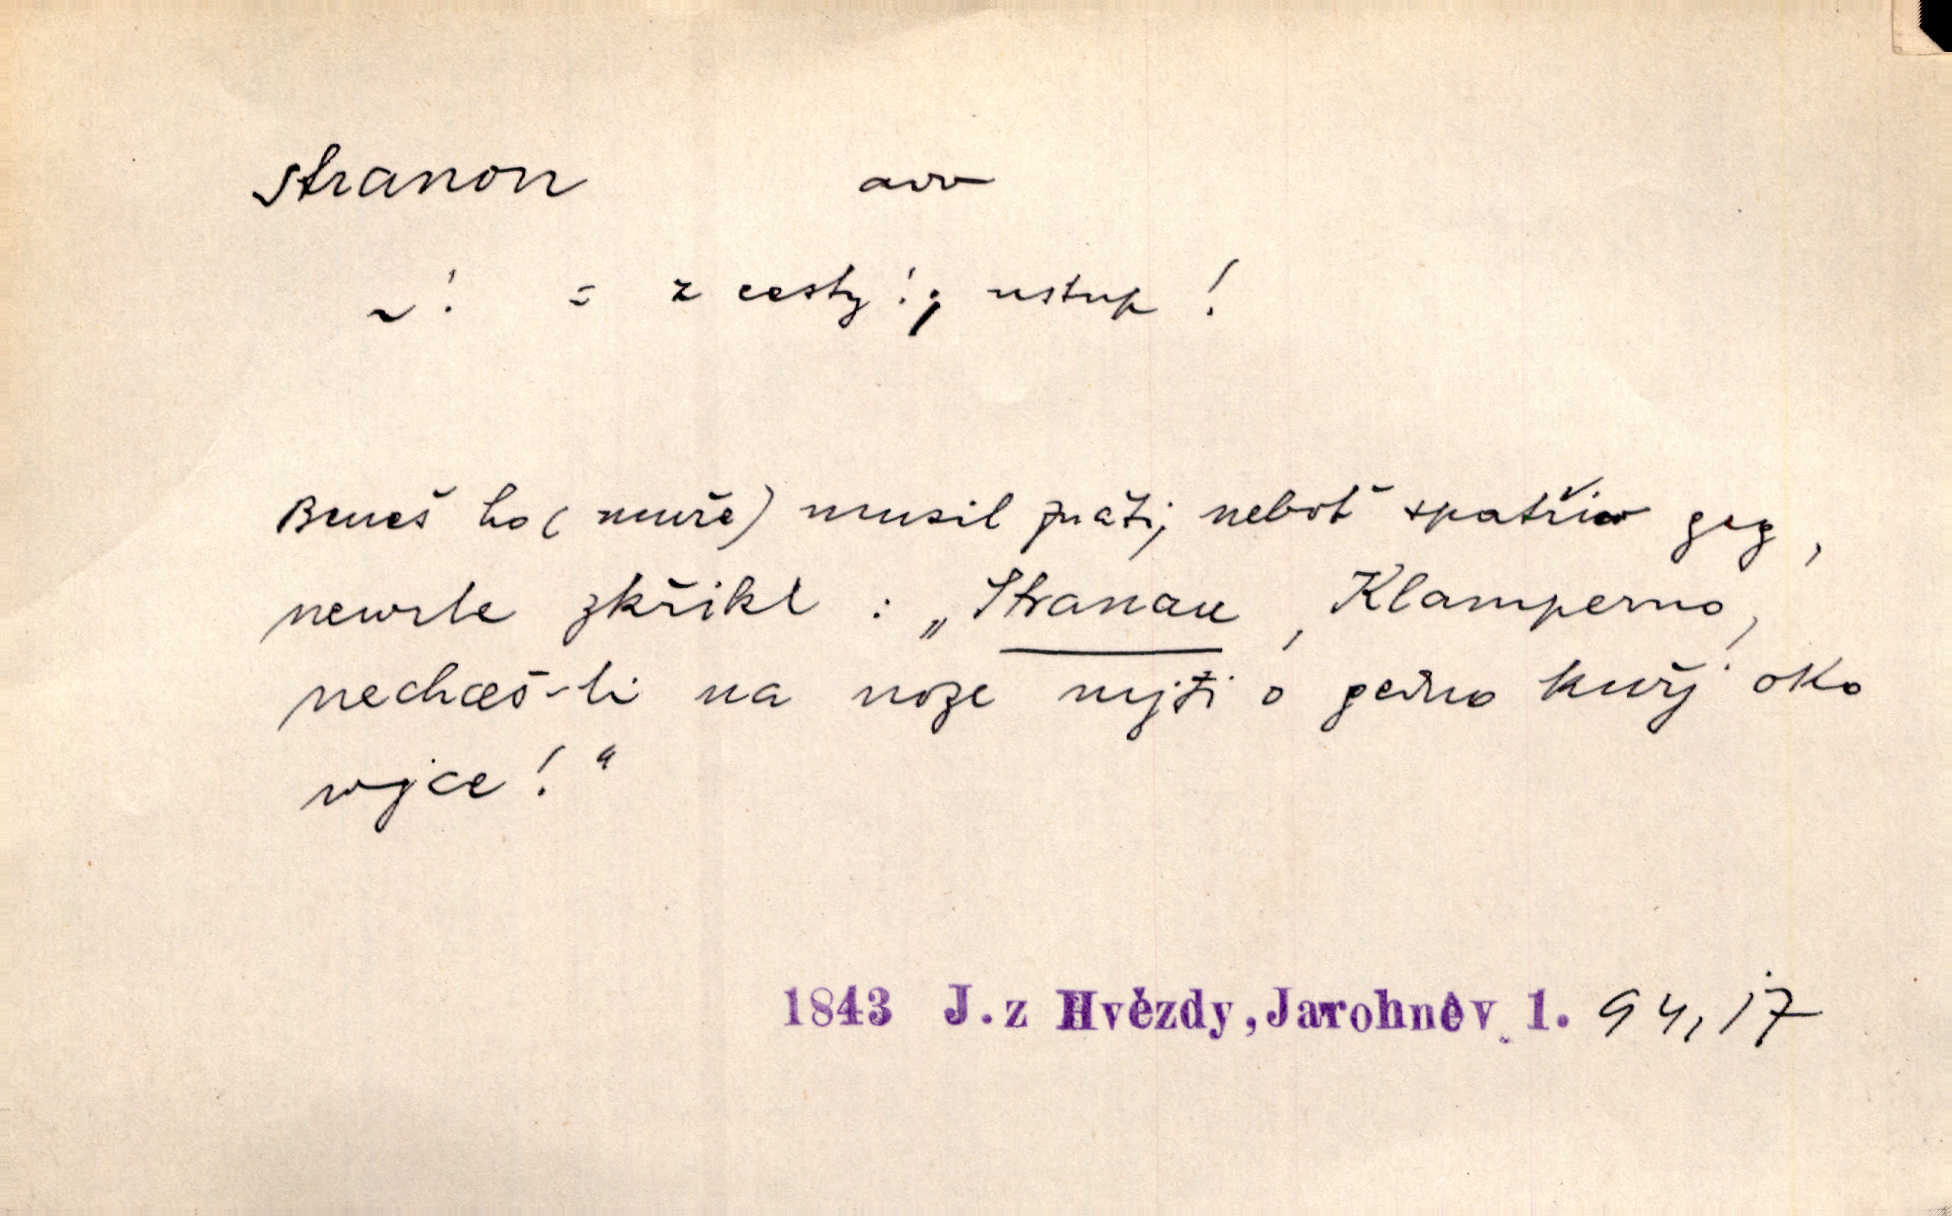 stranou adv
~! = z cesty!; ustup!
Beneš ho (muže) musil znáti, neboť spatřiw geg,
newrle zkřikl : „Stranau, Klamperno,
nechceš-li na noze mjti o gedno kuřj oko
wjce!“
1843 J. z Hvězdy, Jarohněv 1. 94, 17